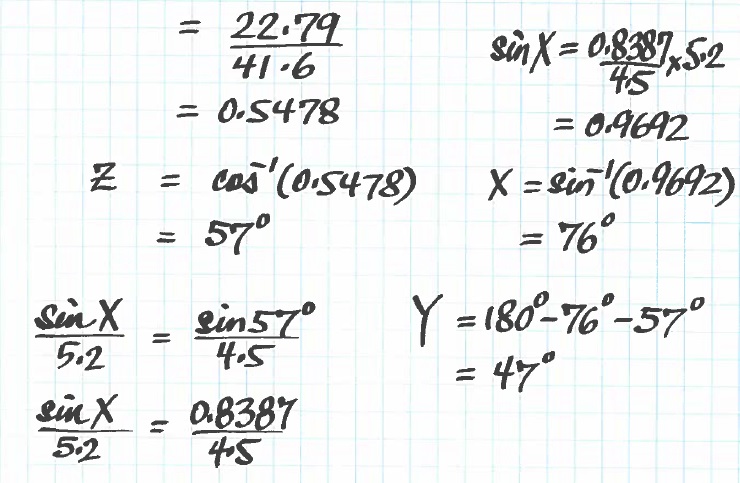 = 22.79/41.6
= 0.5478
Z = cos⁻¹(0.5478)
= 57°
sin X/5.2 = sin 57°/4.5
sin X/5.2 = 0.8387/4.5
sin X = 0.8387/4.5 × 5.2
= 0.9692
X = sin⁻¹(0.9692)
= 76°
Y = 180° - 76° - 57°
= 47°